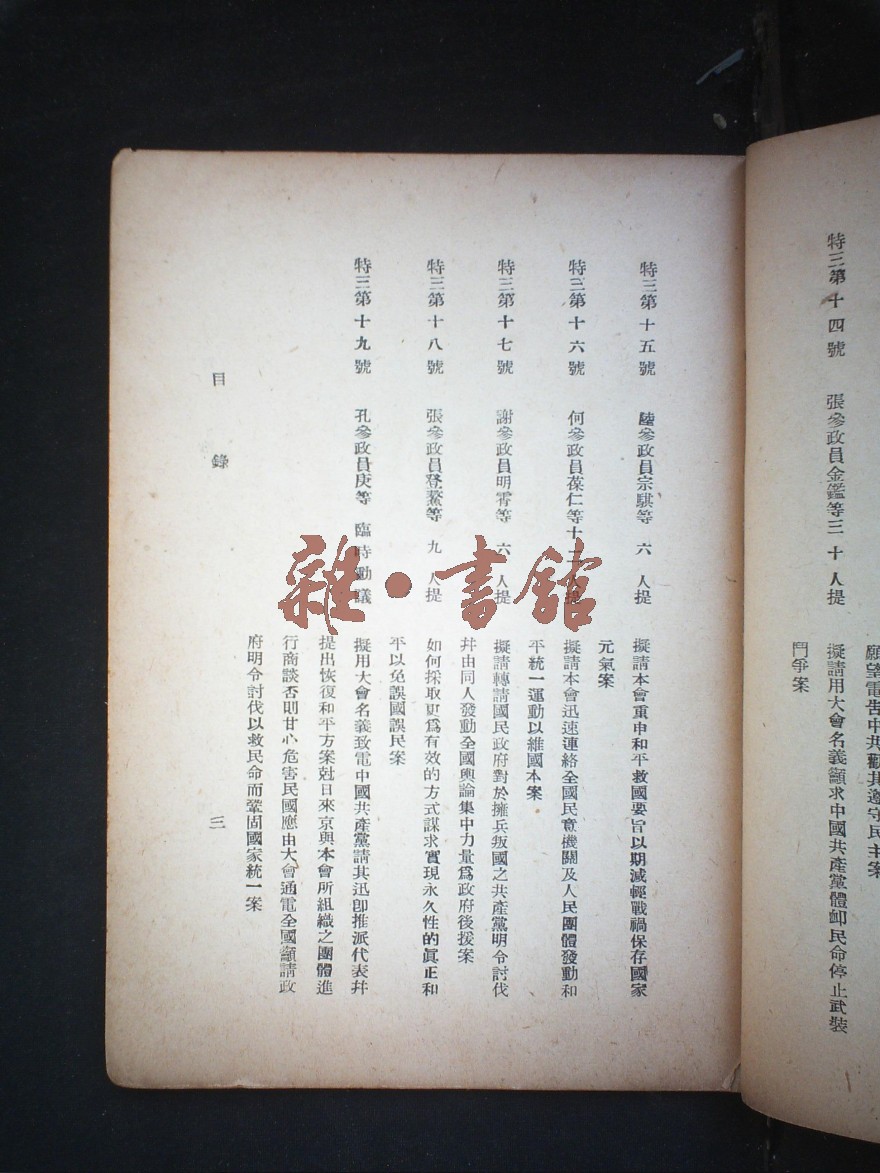 願望電告中共勸其遵守民主案
特三第十四號 張參政員金鑑等三十人提 擬請用大會名義籲求中國共產黨體卹民命停止武裝
鬥爭案
特三第十五號 陸參政員宗騏等 六 人提 擬請本會重申和平救國要旨以期減輕戰禍保存國家
元氣案
特三第十六號 何參政員葆仁等十二人提 擬請本會迅速連絡全國民意機關及人民團體發動和
平統一運動以維國本案
特三第十七號 謝參政員明霄等 六 人提 擬請轉請國民政府對於擁兵叛國之共產黨明令討伐
幷由同人發動全國輿論集中力量爲政府後援案
特三第十八號 張參政員登鰲等 九 人提 如何採取更爲有效的方式謀求實現永久性的眞正和
平以免誤國誤民案
特三第十九號 孔參政員庚等 臨時動議 擬用大會名義致電中國共產黨請其迅卽推派代表幷
提出恢復和平方案尅日來京與本會所組織之團體進
行商談否則甘心危害民國應由大會通電全國籲請政
府明令討伐以救民命而鞏固國家統一案
目錄 三
雜·書館